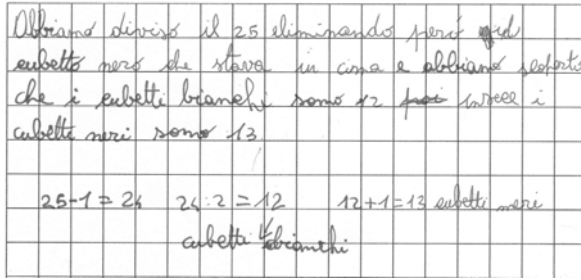 Abbiamo diviso il 25 eliminando però il
cubetto nero che stava in cima e abbiamo scoperto
che i cubetti bianchi sono 12 invece i
cubetti neri sono 13
25-1=24 24:2=12 12+1=13 cubetti neri
cubetti bianchi